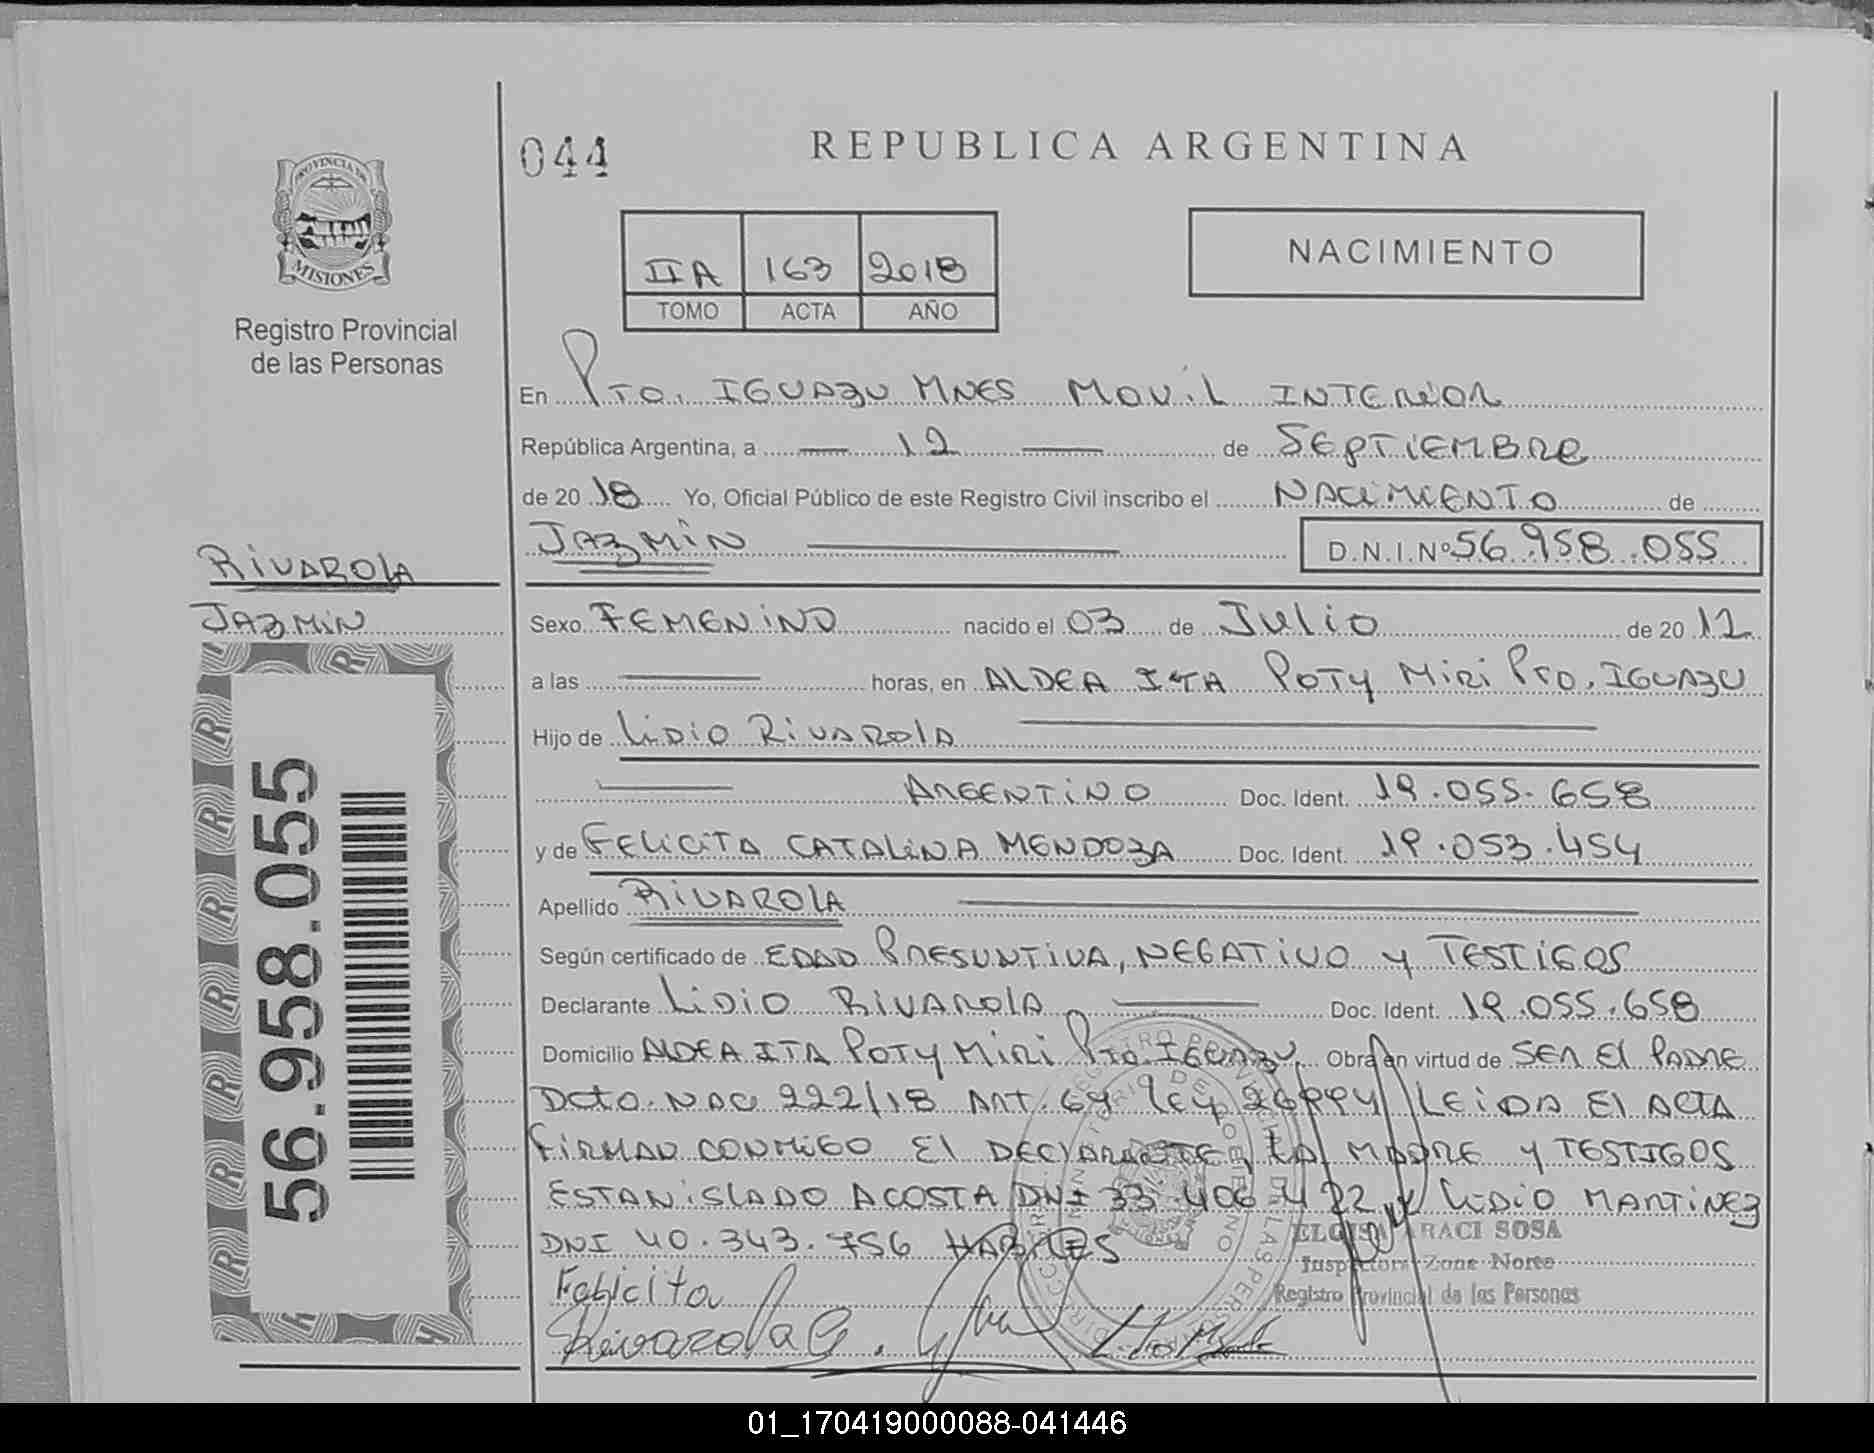 044
REPUBLICA ARGENTINA
PROVINCIA DE
MISIONES
Registro Provincial
de las Personas
IIA 163 2018
TOMO ACTA AÑO
NACIMIENTO
En Pto. IGUAZU MNES MOVIL INTERIOR
República Argentina, a 12 de SEPTIEMBRE
de 2018 Yo, Oficial Público de este Registro Civil inscribo el NACIMIENTO de
JAZMIN D.N.I.Nº 56.958.055
RIVAROLA
JAZMIN
56.958.055
Sexo FEMENINO nacido el 03 de Julio de 2012
a las horas, en ALDEA ITA POTY MIRI PTO. IGUAZU
Hijo de LIDIO RIVAROLA
ARGENTINO Doc. Ident. 19.055.658
y de FELICITA CATALINA MENDOZA Doc. Ident. 19.053.454
Apellido RIVAROLA
Según certificado de EDAD PRESUNTIVA, NEGATIVO Y TESTIGOS
Declarante LIDIO RIVAROLA Doc. Ident. 19.055.658
Domicilio ALDEA ITA POTY MIRI Pto IGUAZU Obra en virtud de SER El PADRE
Dcto. NAC 222/18 ART. 64 ley 26994 LEIDA El ACTA
FIRMAN CONMIGO El DECLARANTE, LA MADRE Y TESTIGOS
ESTANISLADO ACOSTA DNI 33.406.422 Y LIDIO MARTINEZ
DNI 40.343.756 HABILES
ELOISA ARACI SOSA
Inspectora Zona Norte
Registro Provincial de las Personas
Felicita
Rivarola
01_170419000088-041446